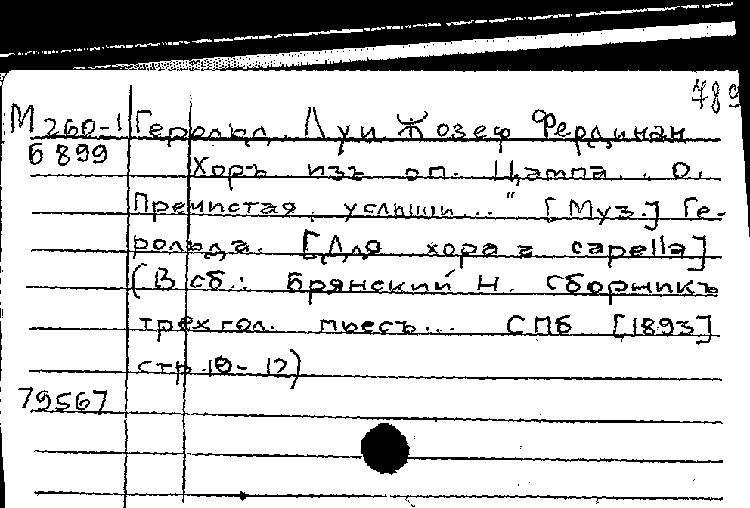 789
М 260-1 Герольд Луи Жозеф Фердинан
б 899
Хоръ изъ оп. Цампа. „О,
Пречистая, услыши..." [Муз.] Ге-
рольда. [Для хора a capella]
(В сб.: Брянский Н. Сборникъ
трехгол. пьесъ... СПб [1893]
стр 10-12)
79567